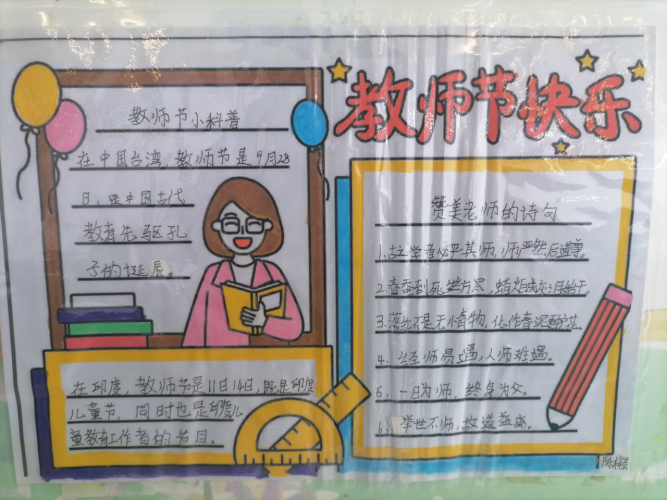 教师节快乐
教师节小科普
在中国台湾,教师节是9月28
日,是中国古代
教育先驱孔
子的诞辰。
在印度,教师节是11日14日,既是印度
儿童节,同时也是印度儿
童教育工作者的节目。
赞美老师的诗句
1.古之学者必严其师,师严然后道尊。
2.春蚕到死丝方尽,蜡炬成
3.落红不是无情物,化作春泥更护花。
4、经师易遇,人师难遇。
5、一日为师,终身为父。
6、举世不师,故道益离。